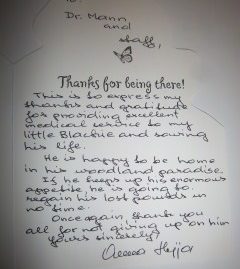 Dr. Mann
and
staff,
Thanks for being there!
This is to express my
thanks and gratitude
for providing excellent
medical service to my
little Blackie and saving
his life.
He is happy to be home
in his woodland paradise.
If he keeps up his enormous
appetite, he is going to
regain his lost pounds in
no time.
Once again thank you
all for not giving up on him
Yours sincerely,